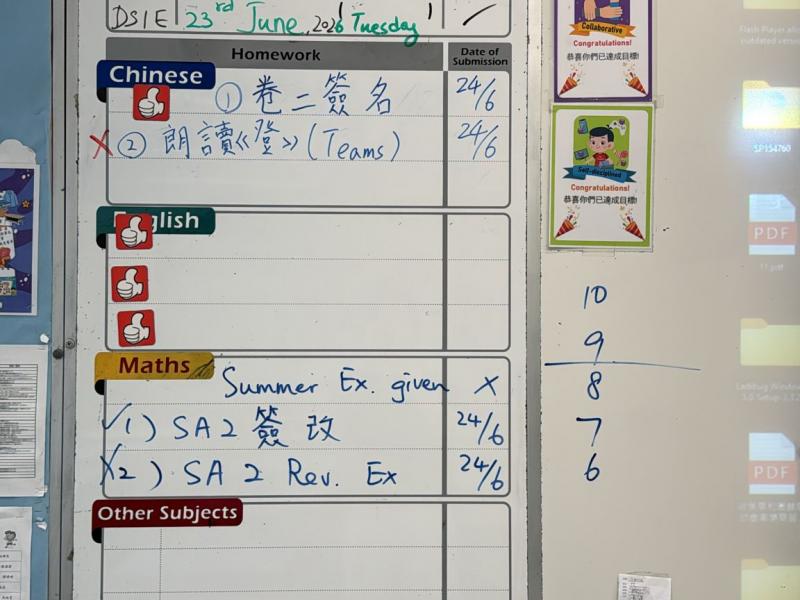 DSIE 23rd June, 2026 Tuesday
Homework
Date of Submission
Chinese
① 卷二簽名 24/6
② 朗讀《登》(Teams) 24/6
English
Maths
Summer Ex. given ×
1) SA2 簽改 24/6
2) SA 2 Rev. Ex 24/6
Other Subjects
Collaborative
Congratulations!
恭喜你們已達成目標!
Self-disciplined
Congratulations!
恭喜你們已達成目標!
10
9
8
7
6
SP154760
PDF
11.pdf
PDF